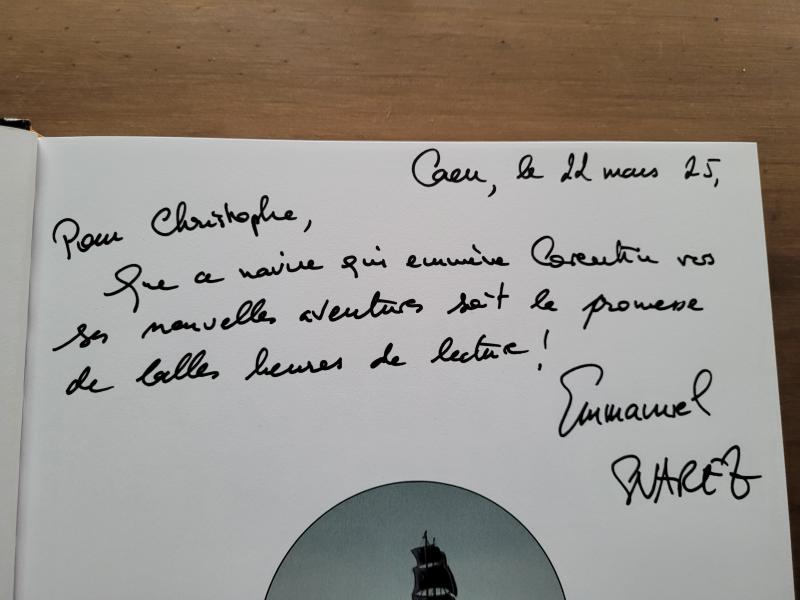 Caen, le 22 mars 25,
Pour Christophe,
Que ce navire qui emmène Corentin vers
ses nouvelles aventures soit la promesse
de belles heures de lecture !
Emmanuel
SUAREZ